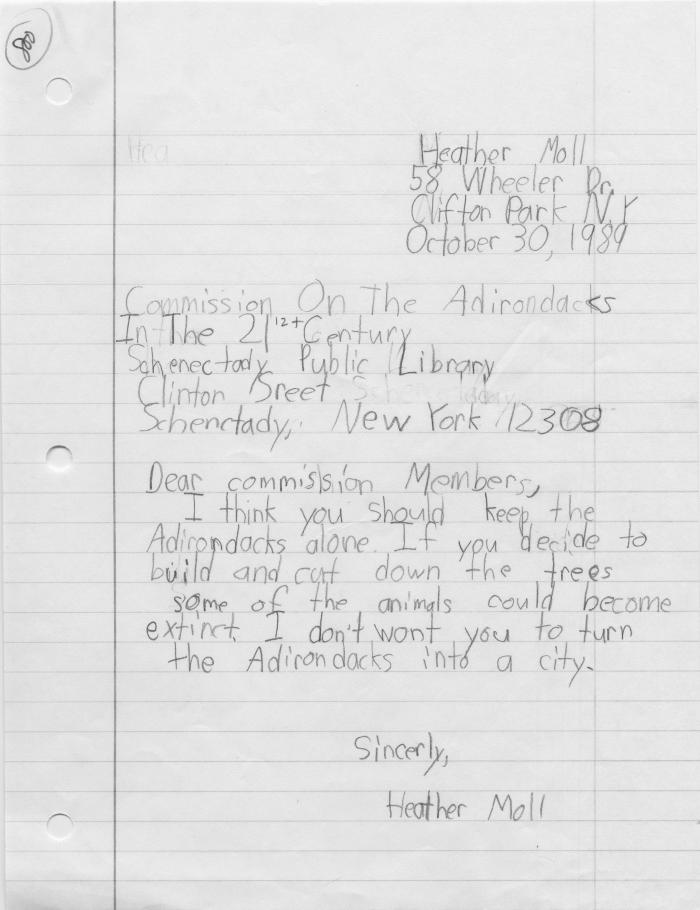 Hea
Heather Moll
58 Wheeler Dr.
Clifton Park N.Y
October 30, 1989
Commission On The Adirondacks
In The 21 12+ Century
Schenectady Public Library
Clinton Sreet
Schenctady, New York 12308
Dear commission Members,
I think you should keep the
Adirondacks alone. If you decide to
build and cut down the trees
some of the animals could become
extinct. I don't wont you to turn
the Adirondacks into a city.
Sincerly,
Heather Moll